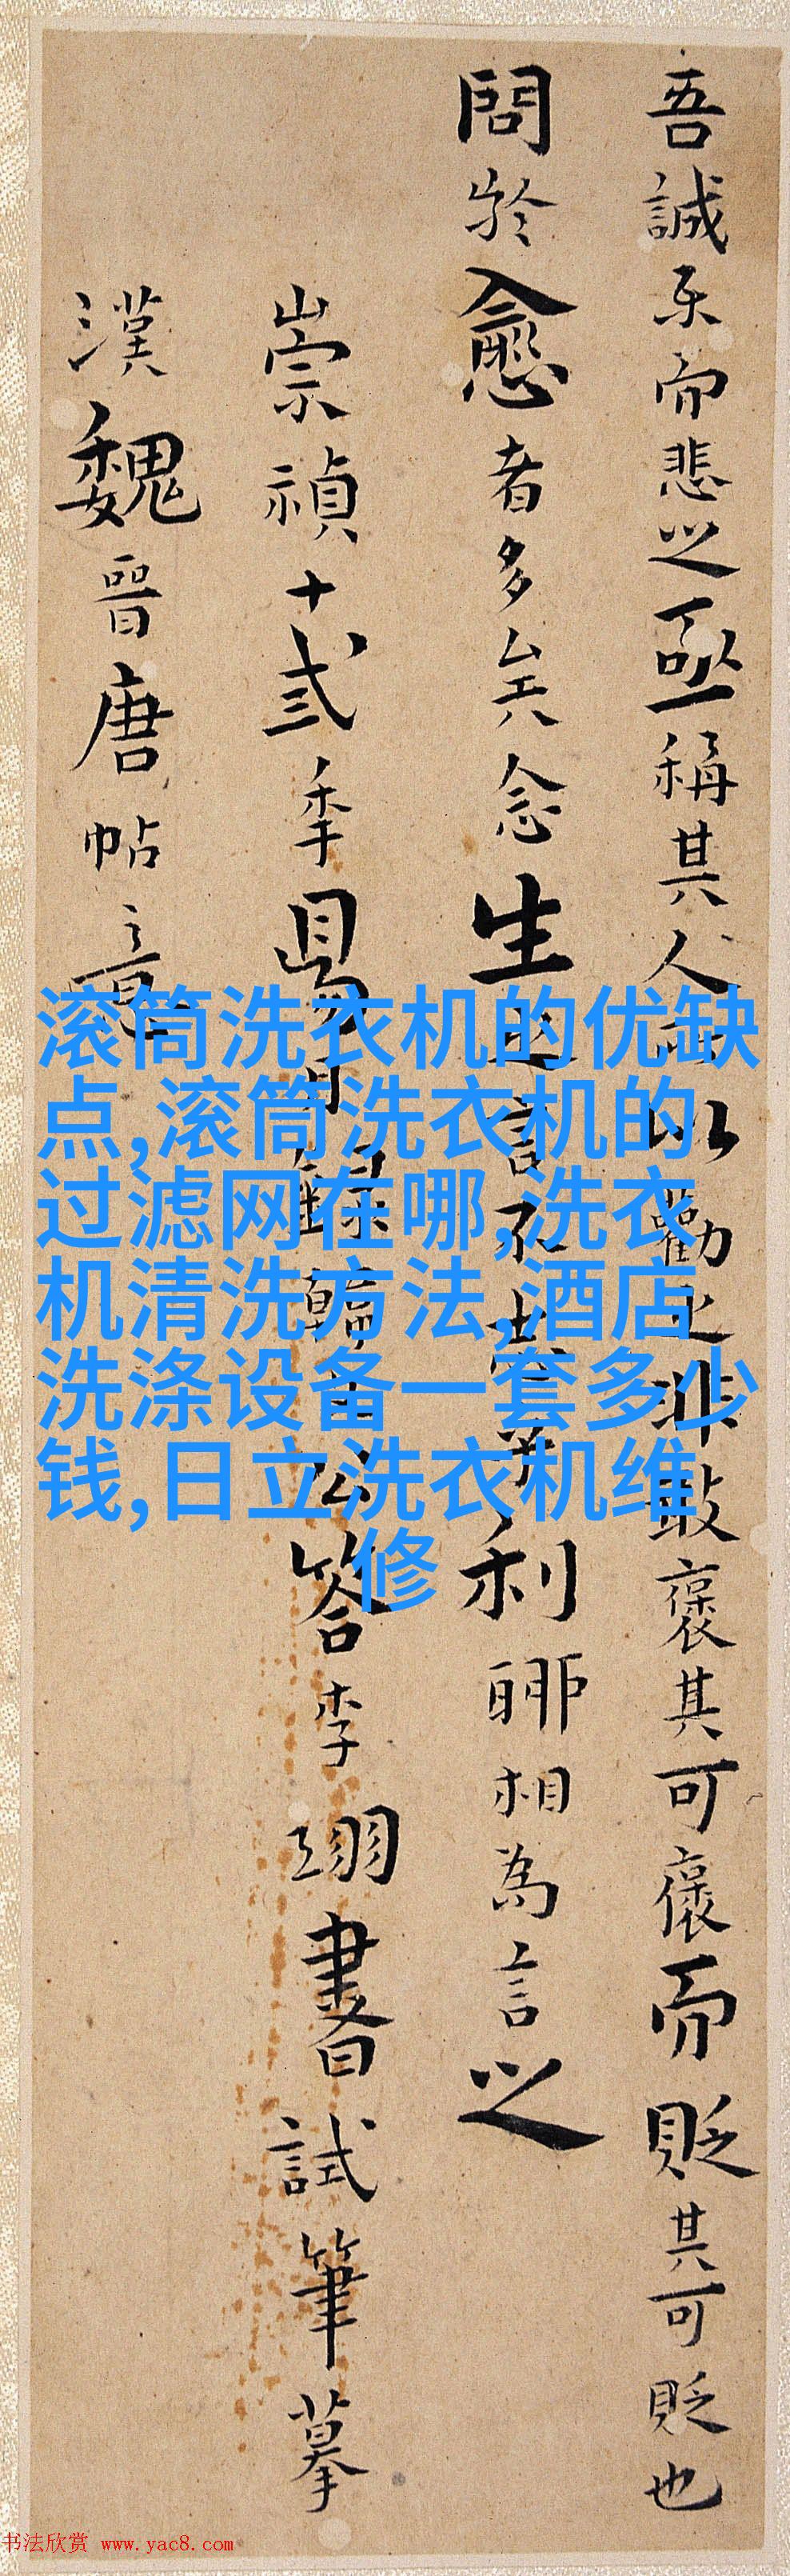 吾誠樂而悲之亟稱其人以勸之非敢褒其可褒而貶其可貶也
問於愈者多矣念生之言不志乎利聊相為言之
崇禎十弎季月錄韓公答李翊書試筆摹
漢魏晉唐帖意
滚筒洗衣机的优缺
点,滚筒洗衣机的
过滤网在哪,洗衣
机清洗方法,酒店
洗涤设备一套多少
钱,日立洗衣机维
修
书法欣赏 www.yac8.com